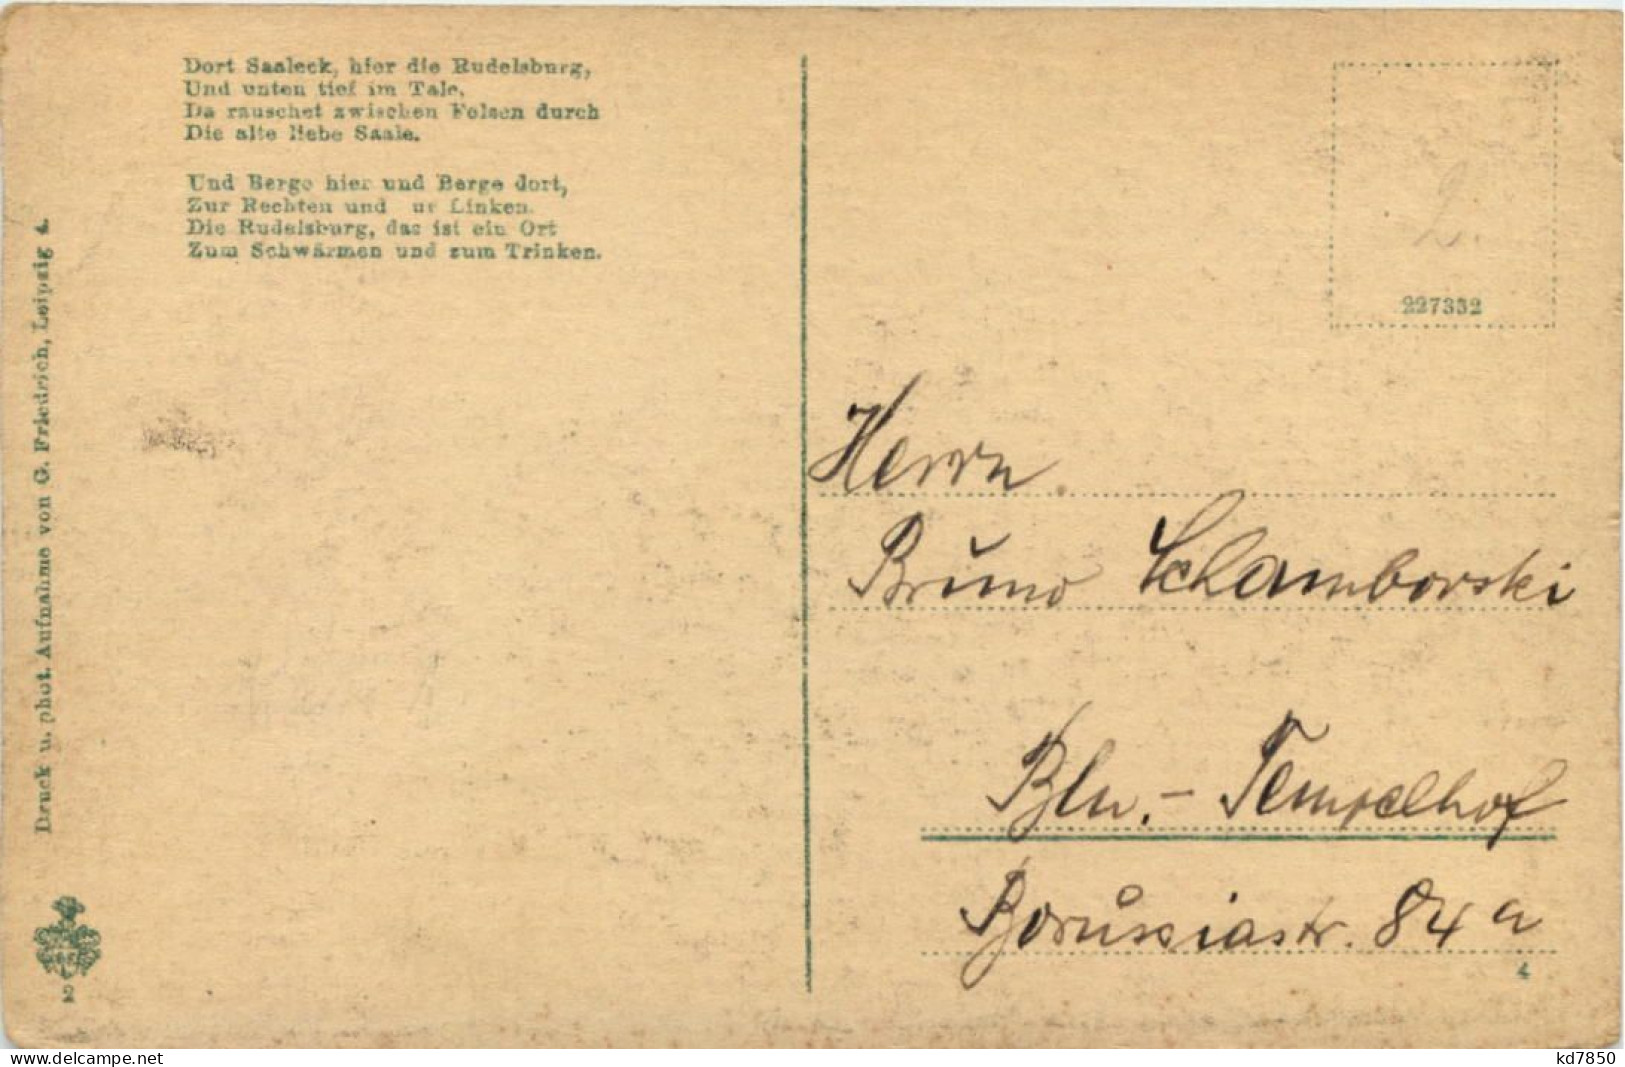 Dort Saaleck, hier die Rudelsburg,
Und unten tief im Tale,
Da rauschet zwischen Felsen durch
Die alte liebe Saale.
Und Berge hier und Berge dort,
Zur Rechten und ur Linken.
Die Rudelsburg, das ist ein Ort
Zum Schwärmen und zum Trinken.
Druck u. phot. Aufnahme von G. Friedrich, Leipzig 4.
2.
227332
Herrn
Bruno Schamborski
Bln.- Tempelhof
Borussiastr. 84 a
4
www.delcampe.net
kd7850